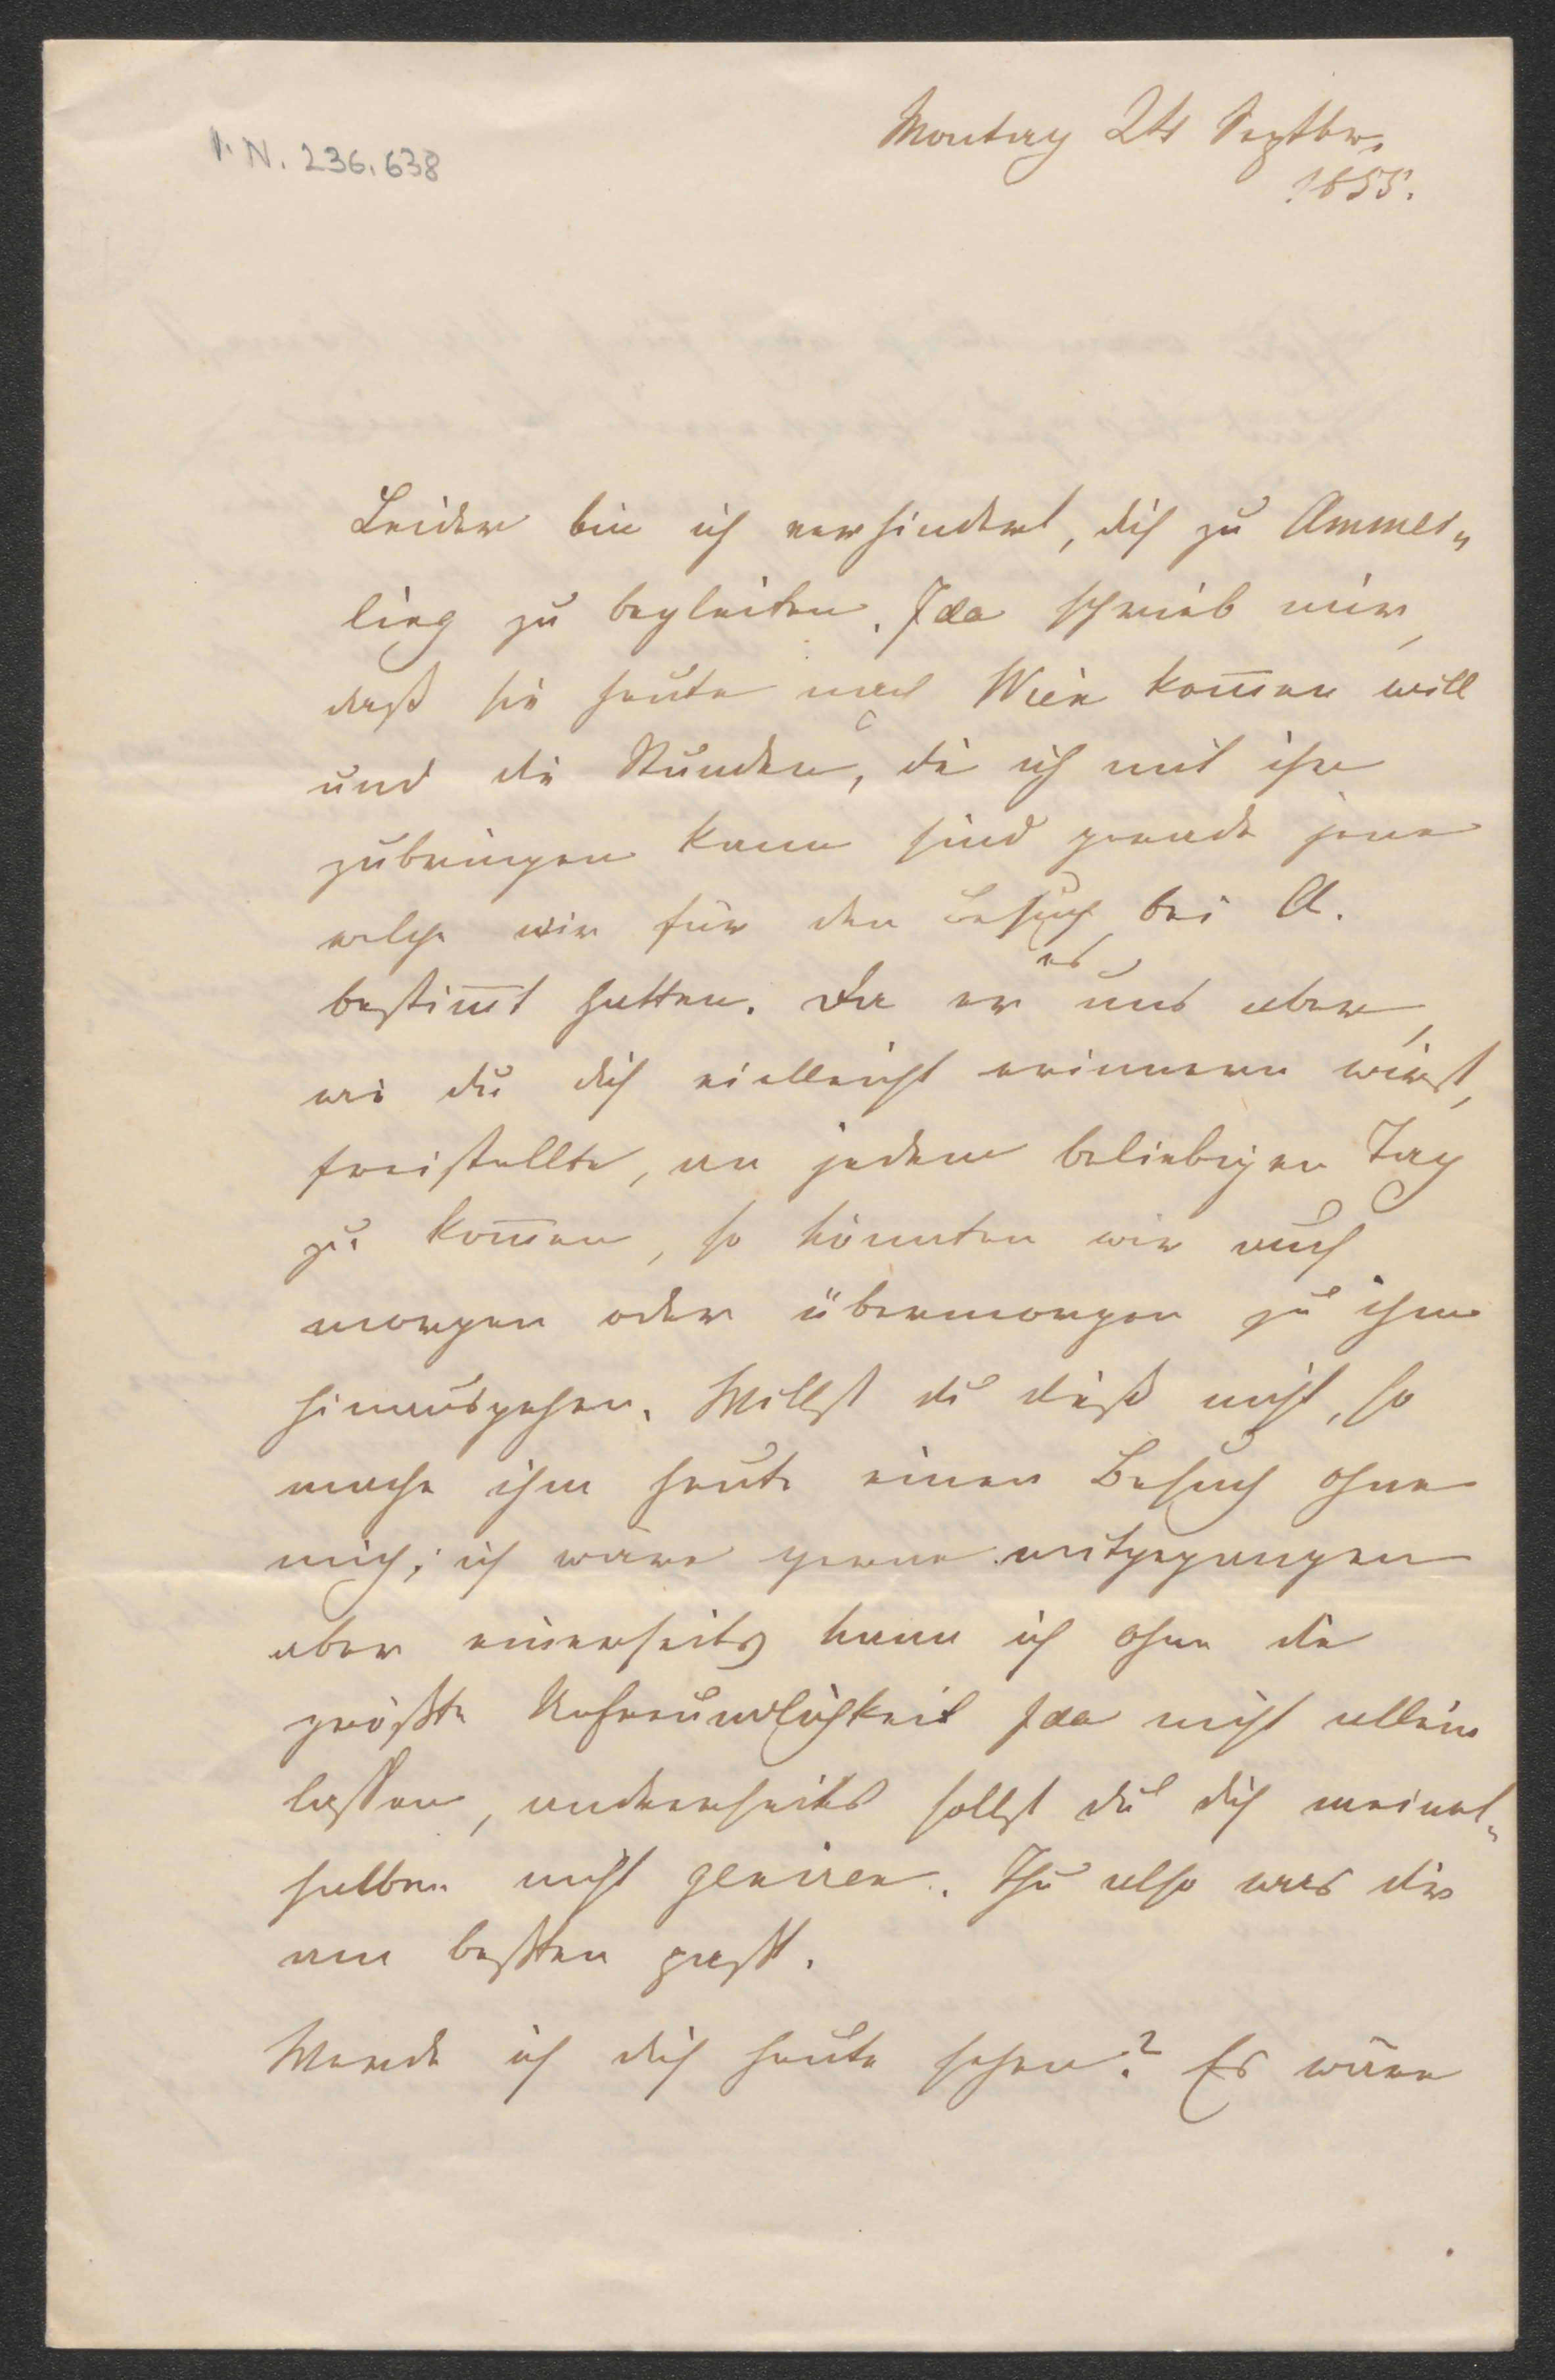 I. N. 236.638
Montag 24 Septbr.
1855.
Leider bin ich verhindert, dich zu Ammer„
ling zu begleiten. Ida schrieb mir,
daß sie heute nach Wien kom̅en will
und die Stunden, die ich mit ihr
zubringen kann sind gerade jene
welche wir für den Besuch bei A.
bestim̅t hatten. Da er es uns aber,
wie du dich vielleicht erinnern wirst,
freistellte, an jedem beliebigen Tag
zu kom̅en, so könnten wir auch
morgen oder übermorgen zu ihm
hinausgehen. Willst du dieß nicht, so
mache ihm heute einen Besuch ohne
mich; ich wäre gerne mitgegangen
aber einerseits kann ich ohne die
größte Unfreundlichkeit Ida nicht allein
lassen, anderseits sollst du dich meinet„
halben nicht geniren. Thu also was dir
am besten paßt.
Werde ich dich heute sehen? Es wäre